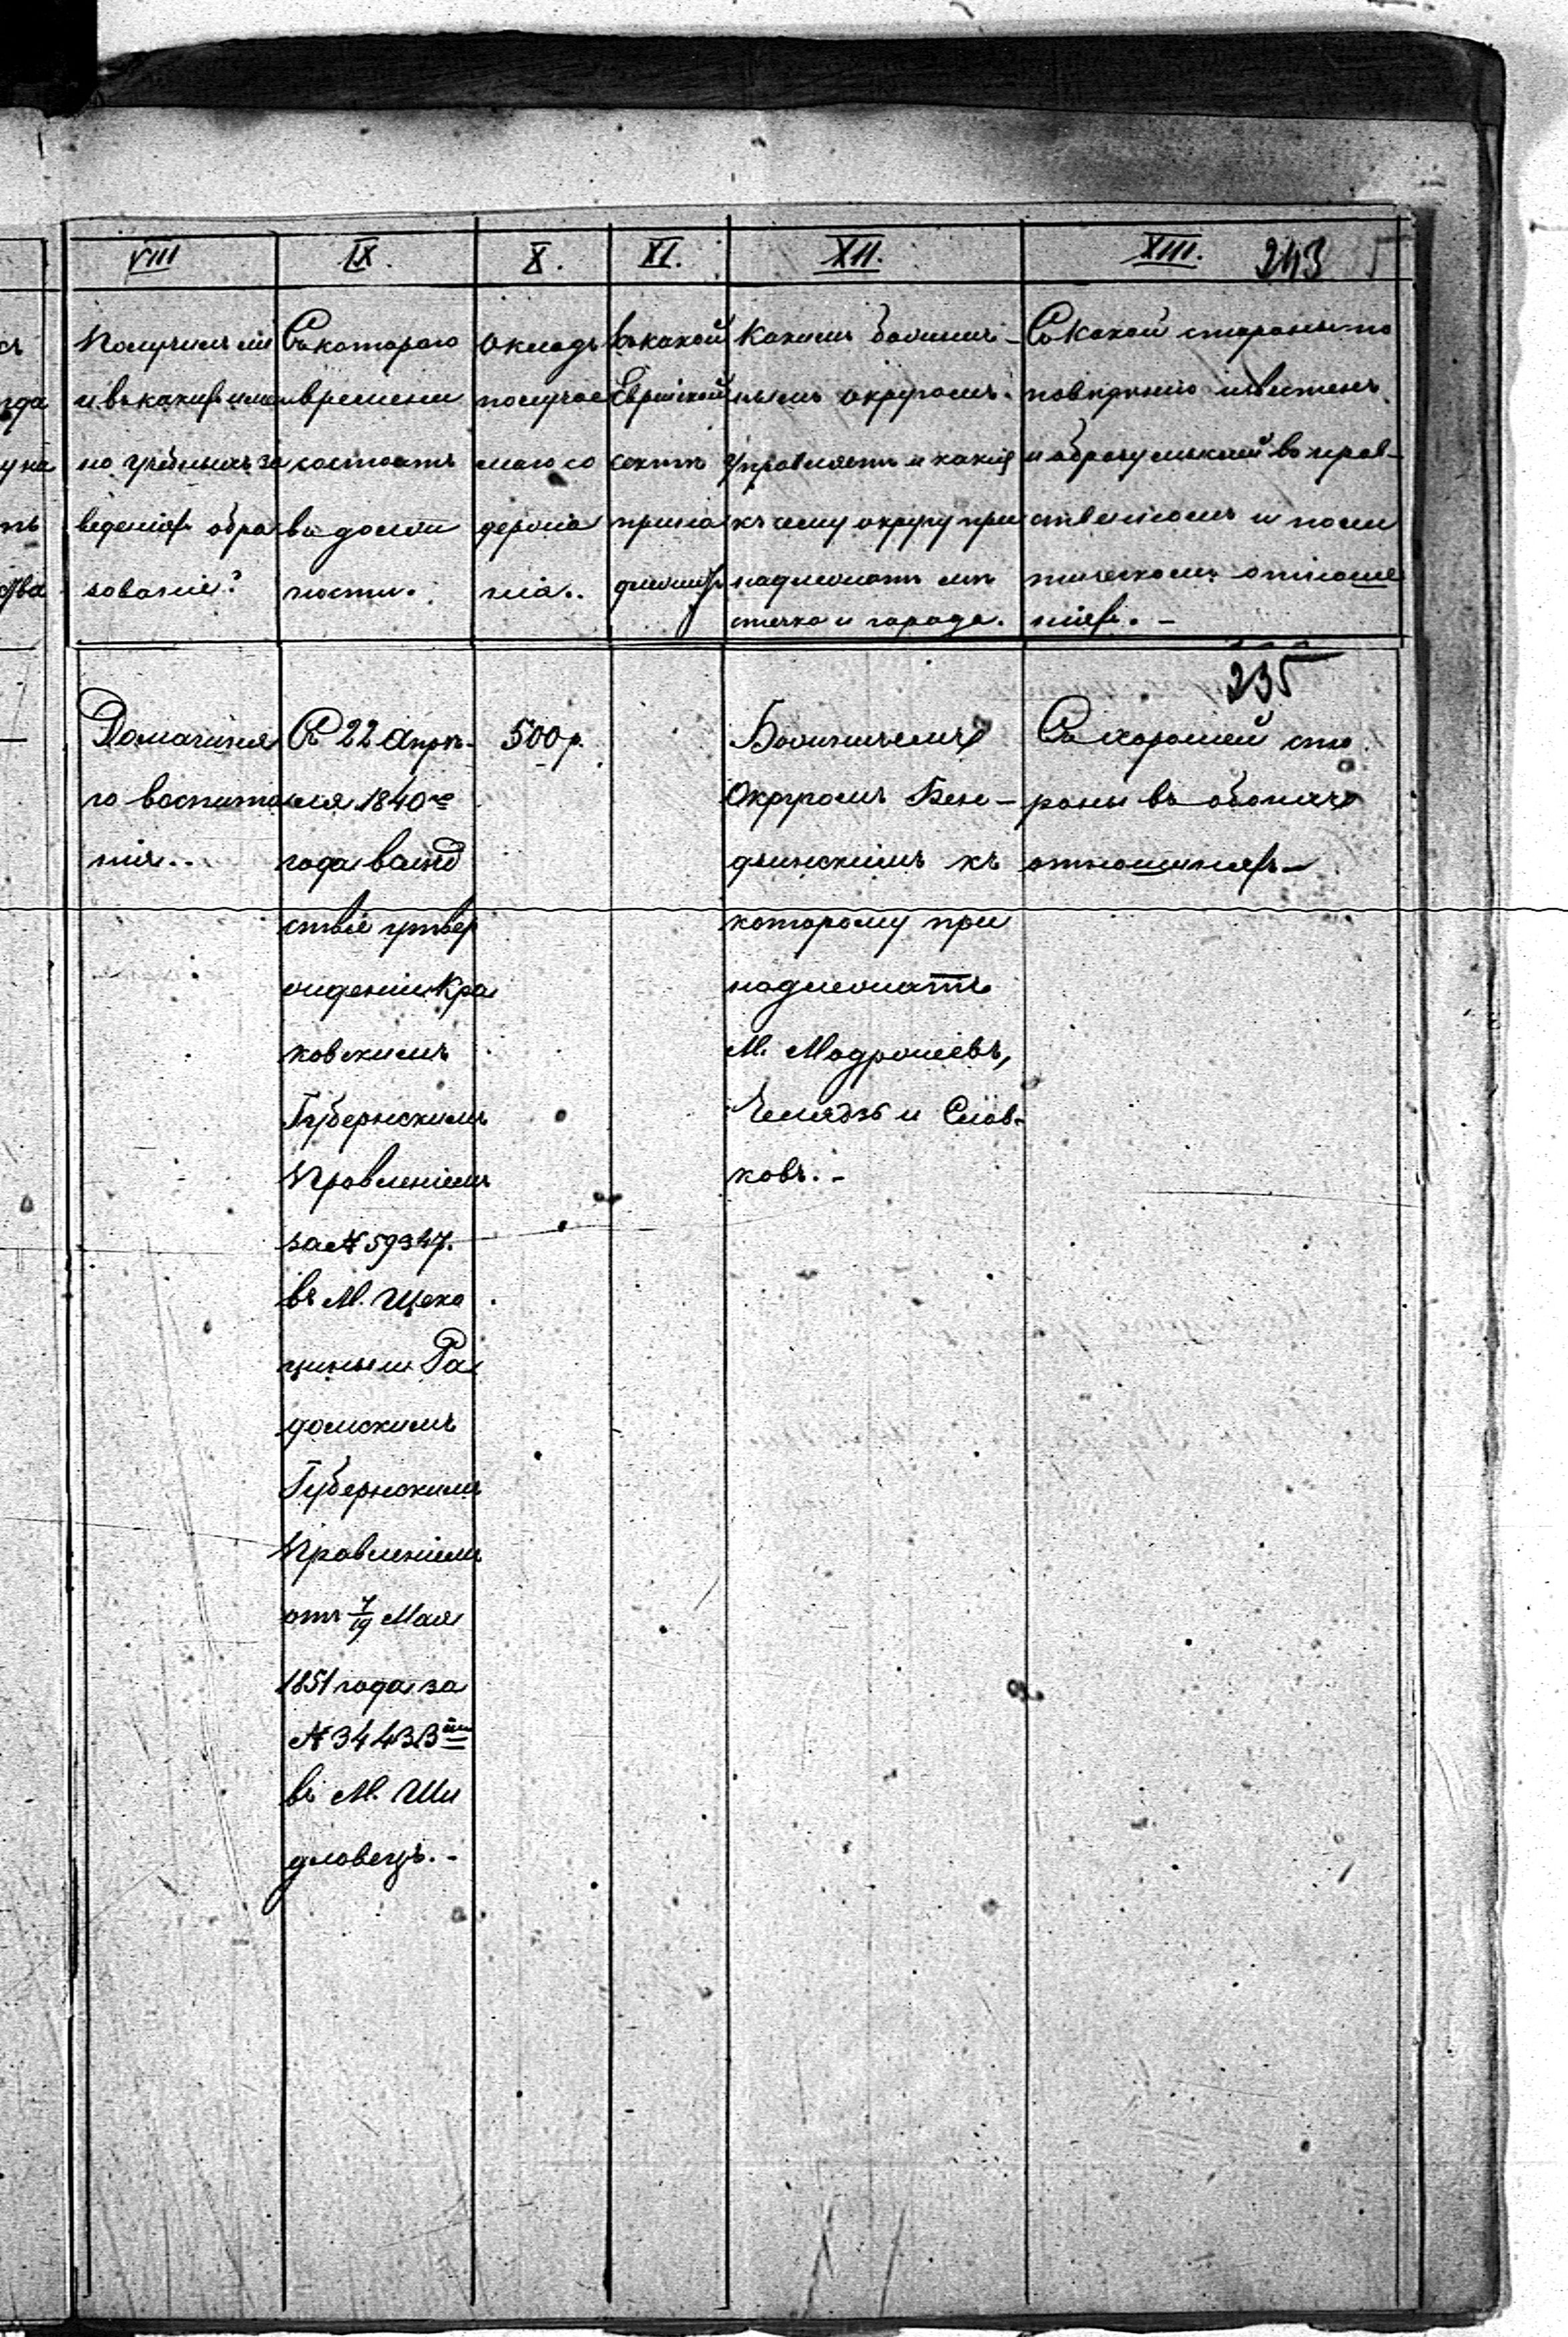 VIII
IX.
X.
XI.
XII.
XIII.
243
Получилъ ли
и въ какихъ имен
но учебныхъ за
веденіяхъ обра
зованіе?
Съ котораго
времени
состоитъ
въ долж
ности.
Окладъ
получае
маго со
держа
нія..
Въ какой
Еврейской
сектѣ
прина
длежитъ
Какимъ божнич-
нымъ округомъ
управляетъ и какія
къ сему округу при
надлежатъ мѣ
стечка и города.
Съ какой стороны по
поведенію извѣстенъ
и образу мыслей въ нрав-
ственномъ и поли
тическомъ отноше
ніяхъ. -
235
Домашня
го воспита
нія..
Съ 22 Апрѣ-
ля 1840го
года вслѣд
ствіе утвер
жденія Кра
ковскимъ
Губернскимъ
Правленіемъ
за № 59347.
въ М. Щеко
цины и Ра
домскимъ
Губернскимъ
Правленіемъ
отъ 7/19 Мая
1851 года за
№ 34433
въ М. Ши
дловецъ. -
500 р.
Божничемъ
Округомъ Бен-
дзинскимъ къ
которому при
надлежатъ
М. Модржеевъ,
Челядзь и Слав-
ковъ. -
Съ хорошей сто
роны въ обоихъ
отношеніяхъ -